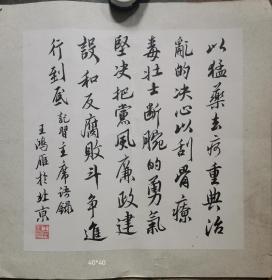 以猛药去疴重典治
亂的决心以刮骨療
毒壮士断腕的勇氣
堅决把黨風廉政建
設和反腐敗斗争進
行到底 記習主席语録
王鸿雁於北京
40*40